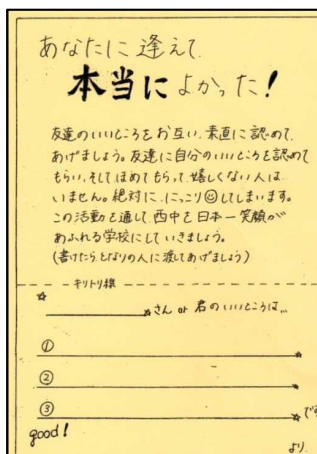 あなたに逢えて
本当によかった!
友達のいいところをお互い、素直に認めて
あげましょう。友達に自分のいいところを認めて
もらい、そしてほめてもらって、嬉しくない人は
いません。絶対に、にっこり☺してしまいます。
この活動を通して、西中を日本一笑顔が
あふれる学校にしていきましょう。
(書けたら、となりの人に渡してあげましょう)
キリトリ線
さん or 君のいいところは…
①
②
③
です
good!
より